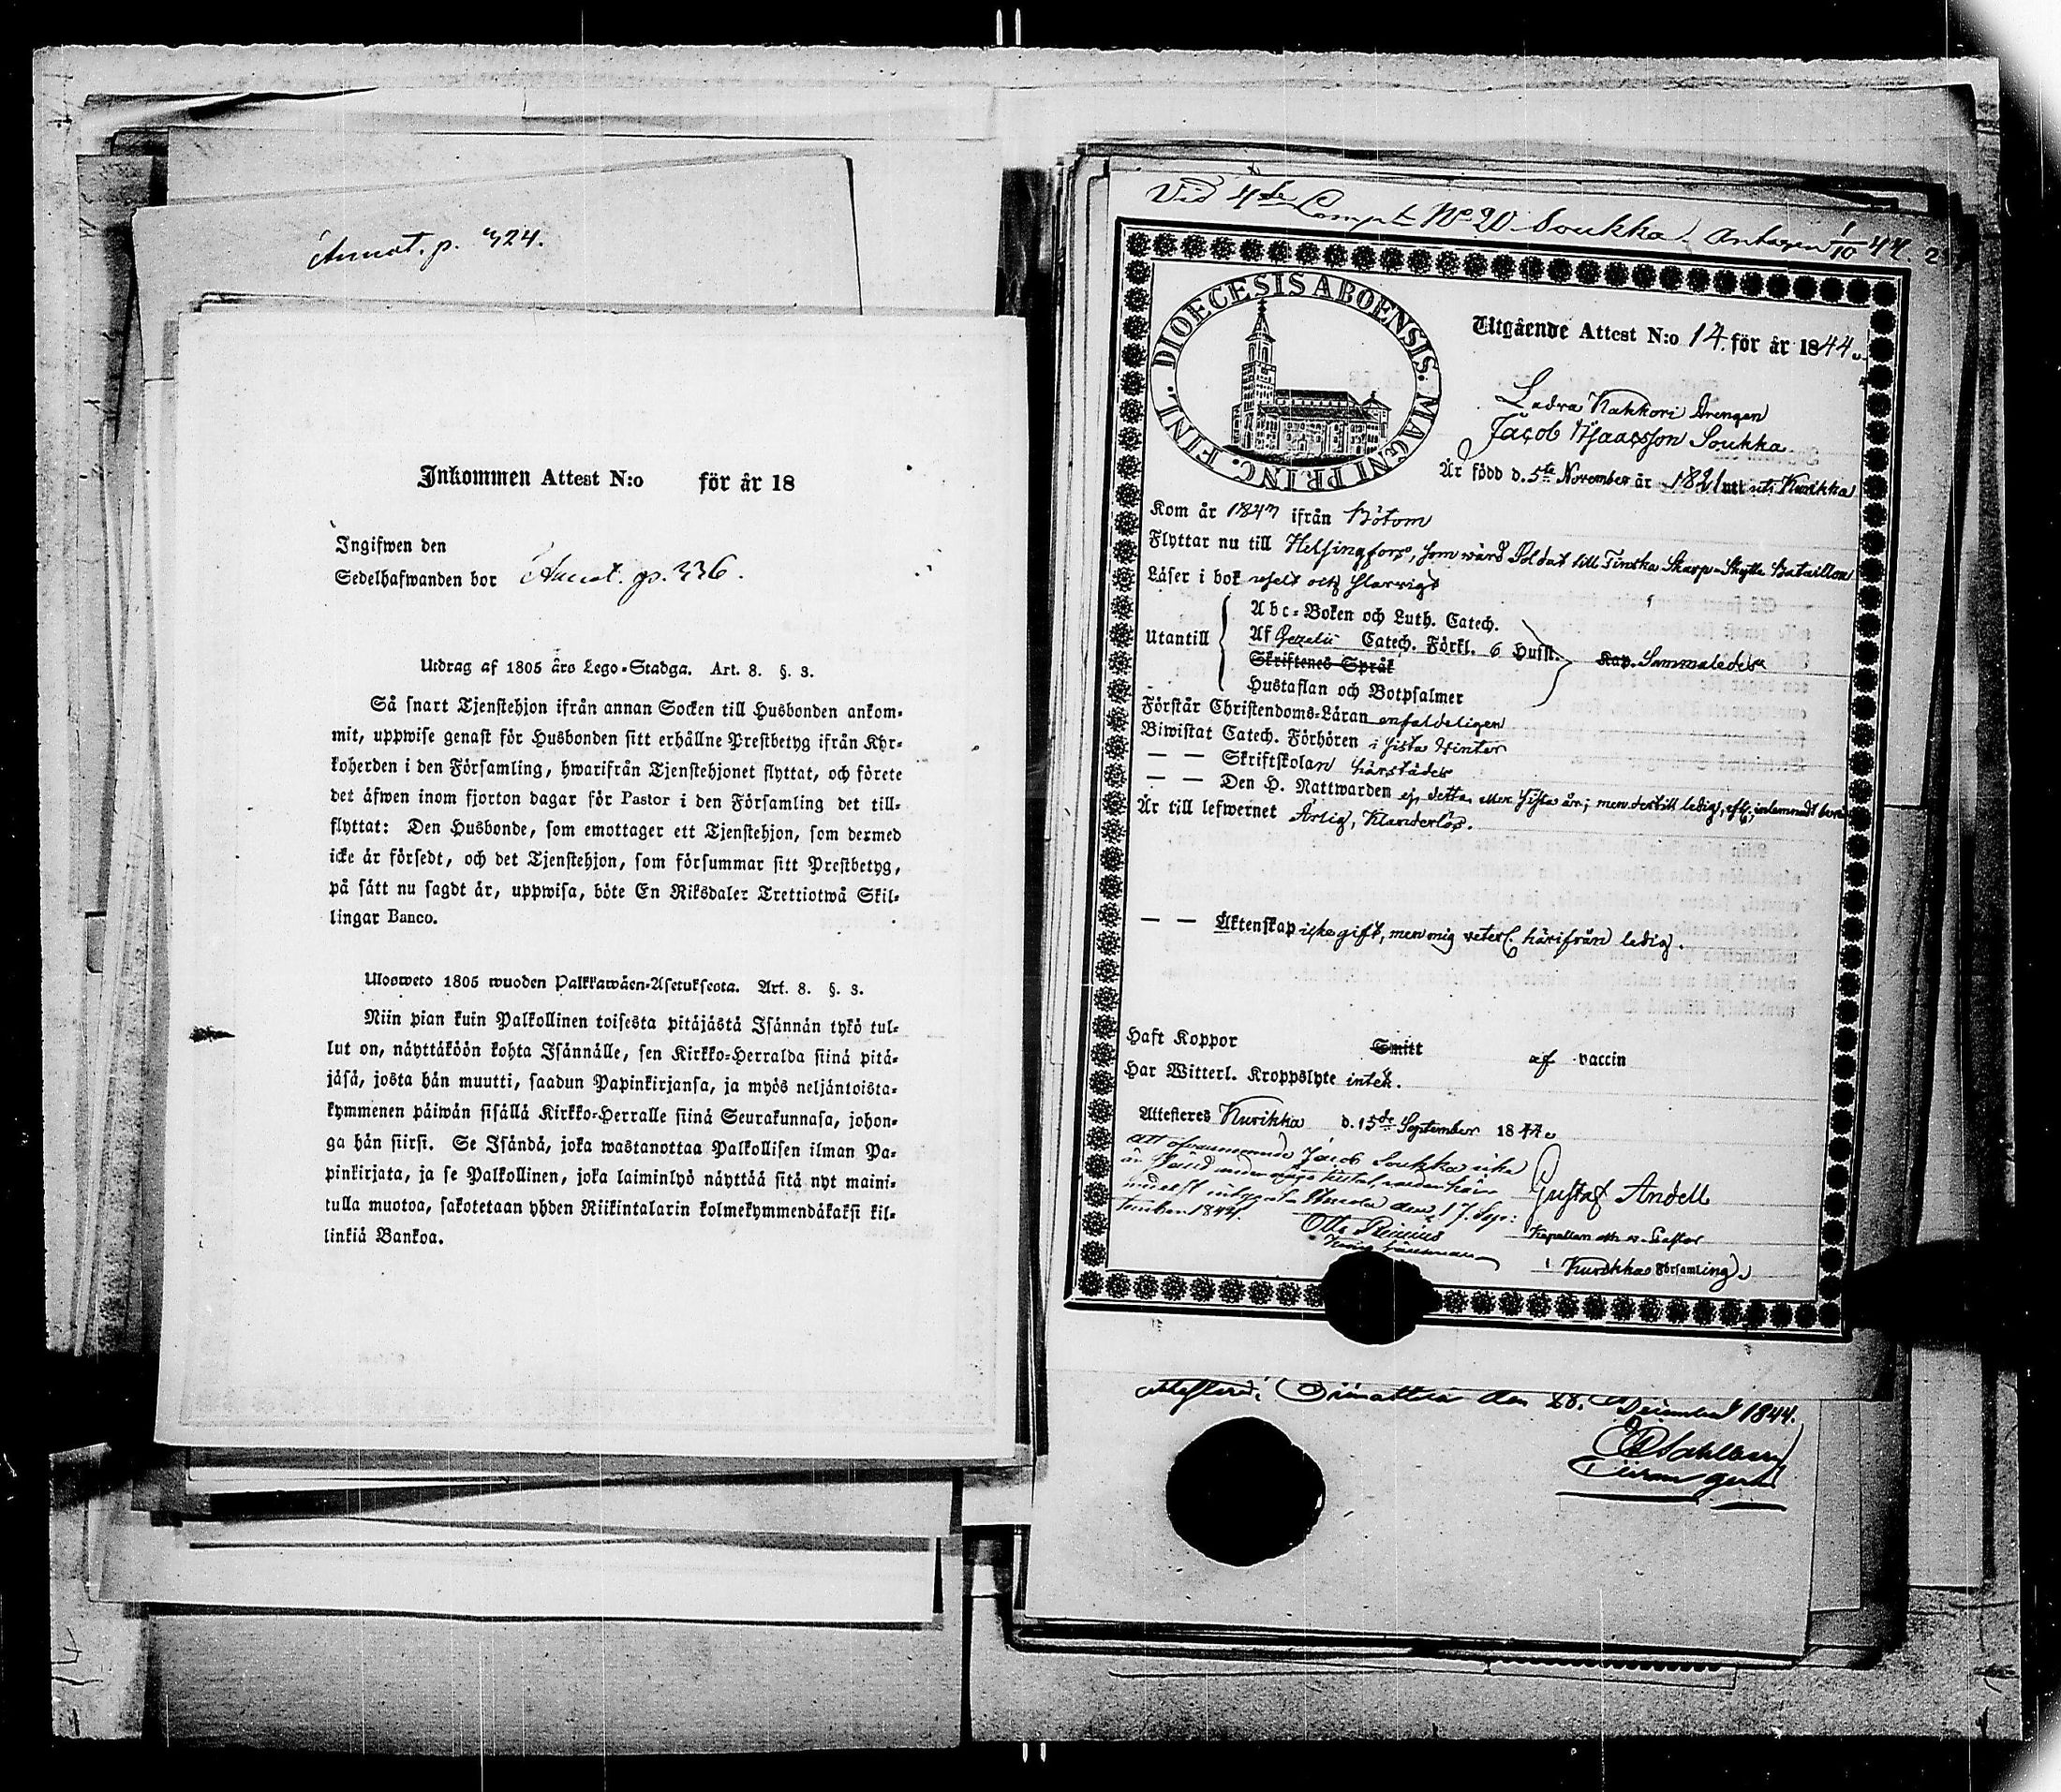 Annot. p. 324.
Inkommen Attest N:o för år 18
Ingifwen den
Sedelhafwanden bor Annot. p. 336.
Utdrag af 1805 års Lego-Stadga. Art. 8. §. 3.
Så snart Tjenstehjon ifrån annan Socken till Husbonden ankom-
mit, uppwise genast för Husbonden sitt erhållne Prestbetyg ifrån Kyr-
koherden i den Församling, hwarifrån Tjenstehjonet flyttat, och förete
det äfwen inom fjorton dagar för Pastor i den Församling det till-
flyttat: Den Husbonde, som emottager ett Tjenstehjon, som dermed
icke är försedt, och det Tjenstehjon, som försummar sitt Prestbetyg,
på sätt nu sagdt är, uppwisa, böte En Riksdaler Trettiotwå Skil-
lingar Banco.
Ulosweto 1805 wuoden Palkkawäen-Asetuksesta. Art. 8. §. 3.
Niin pian kuin Palkollinen toisesta pitäjästä Isännän tykö tul-
lut on, näyttäköön kohta Isännälle, sen Kirkko-Herralda siinä pitä-
jäsä, josta hän muutti, saadun Papinkirjansa, ja myös neljäntoista-
kymmenen päiwän sisällä Kirkko-Herralle siinä Seurakunnasa, johon-
ga hän siirsi. Se Isändä, joka wastanottaa Palkollisen ilman Pa-
pinkirjata, ja se Palkollinen, joka laiminlyö näyttää sitä nyt maini-
tulla muotoa, sakotetaan yhden Riikintalarin kolmekymmendäkaksi kil-
linkiä Bankoa.
Vid 4de Comp. No 20 Soukka. Antagen 1/10 44.
DIOECESIS ABOENSIS. MAGNI PRINC. FINL.
Utgående Attest N:o 14 för år 1844.
Ladra Kakkori Drengen
Jacob Isaacsson Soukka
Är född d. 5te November år 1821 uti Kurikka
Kom år 1843 ifrån Bötom
Flyttar nu till Helsingfors, som wärd Soldat till Finska Skarp-Skytte Bataillon
Läser i bok och
Utantill
Abc-Boken och Luth. Catech.
Af Gezelii Catech. Förkl. 6 Hufst. Kap. Sammaledes
Skriftenes Språk
Hustaflan och Botpsalmer
Förstår Christendoms-Läran enfaldeligen
Biwistat Catech. Förhören i sista Winter
— — Skriftskolan härstädes
— — Den H. Nattwarden ej detta eller sista år; men dertill ledig,
Är till lefwernet Ärlig, Klanderlös.
— — Äktenskap icke gift, men mig veterl. härifrån ledig.
Haft Koppor Smitt af vaccin
Har Witterl. Kroppslyte intet.
Attesteres Kurikka d. 15de September 1844.
Att ofvannämnde Jacob Soukka icke
är under här
intygar den 17 Sep-
tember 1844.
Otto
Gustaf Andell
Kapellan och v. Pastor
i Kurikka Församling.
Attesterar Orimattila den 28. December 1844.